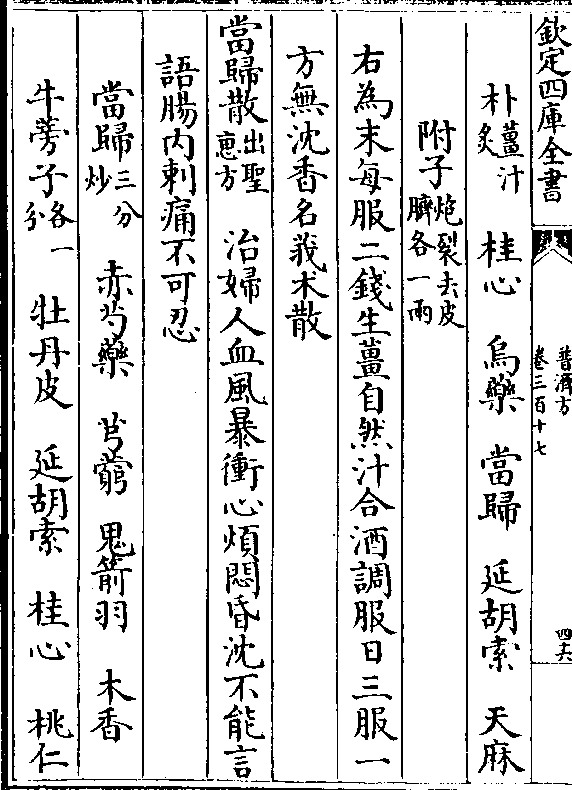 欽定四庫全書
普濟方
卷三百十七
四六
朴薑汁炙 桂心 烏藥 當歸 延胡索 天麻
附子炮裂去皮臍各一兩
右為末每服二錢生薑自然汁合酒調服日三服一
方無沈香名莪朮散
當歸散出聖惠方 治婦人血風暴衝心煩悶昏沈不能言
語腸内刺痛不可忍
當歸三分炒 赤芍藥 芎藭 鬼箭羽 木香
牛蒡子各一分 牡丹皮 延胡索 桂心 桃仁